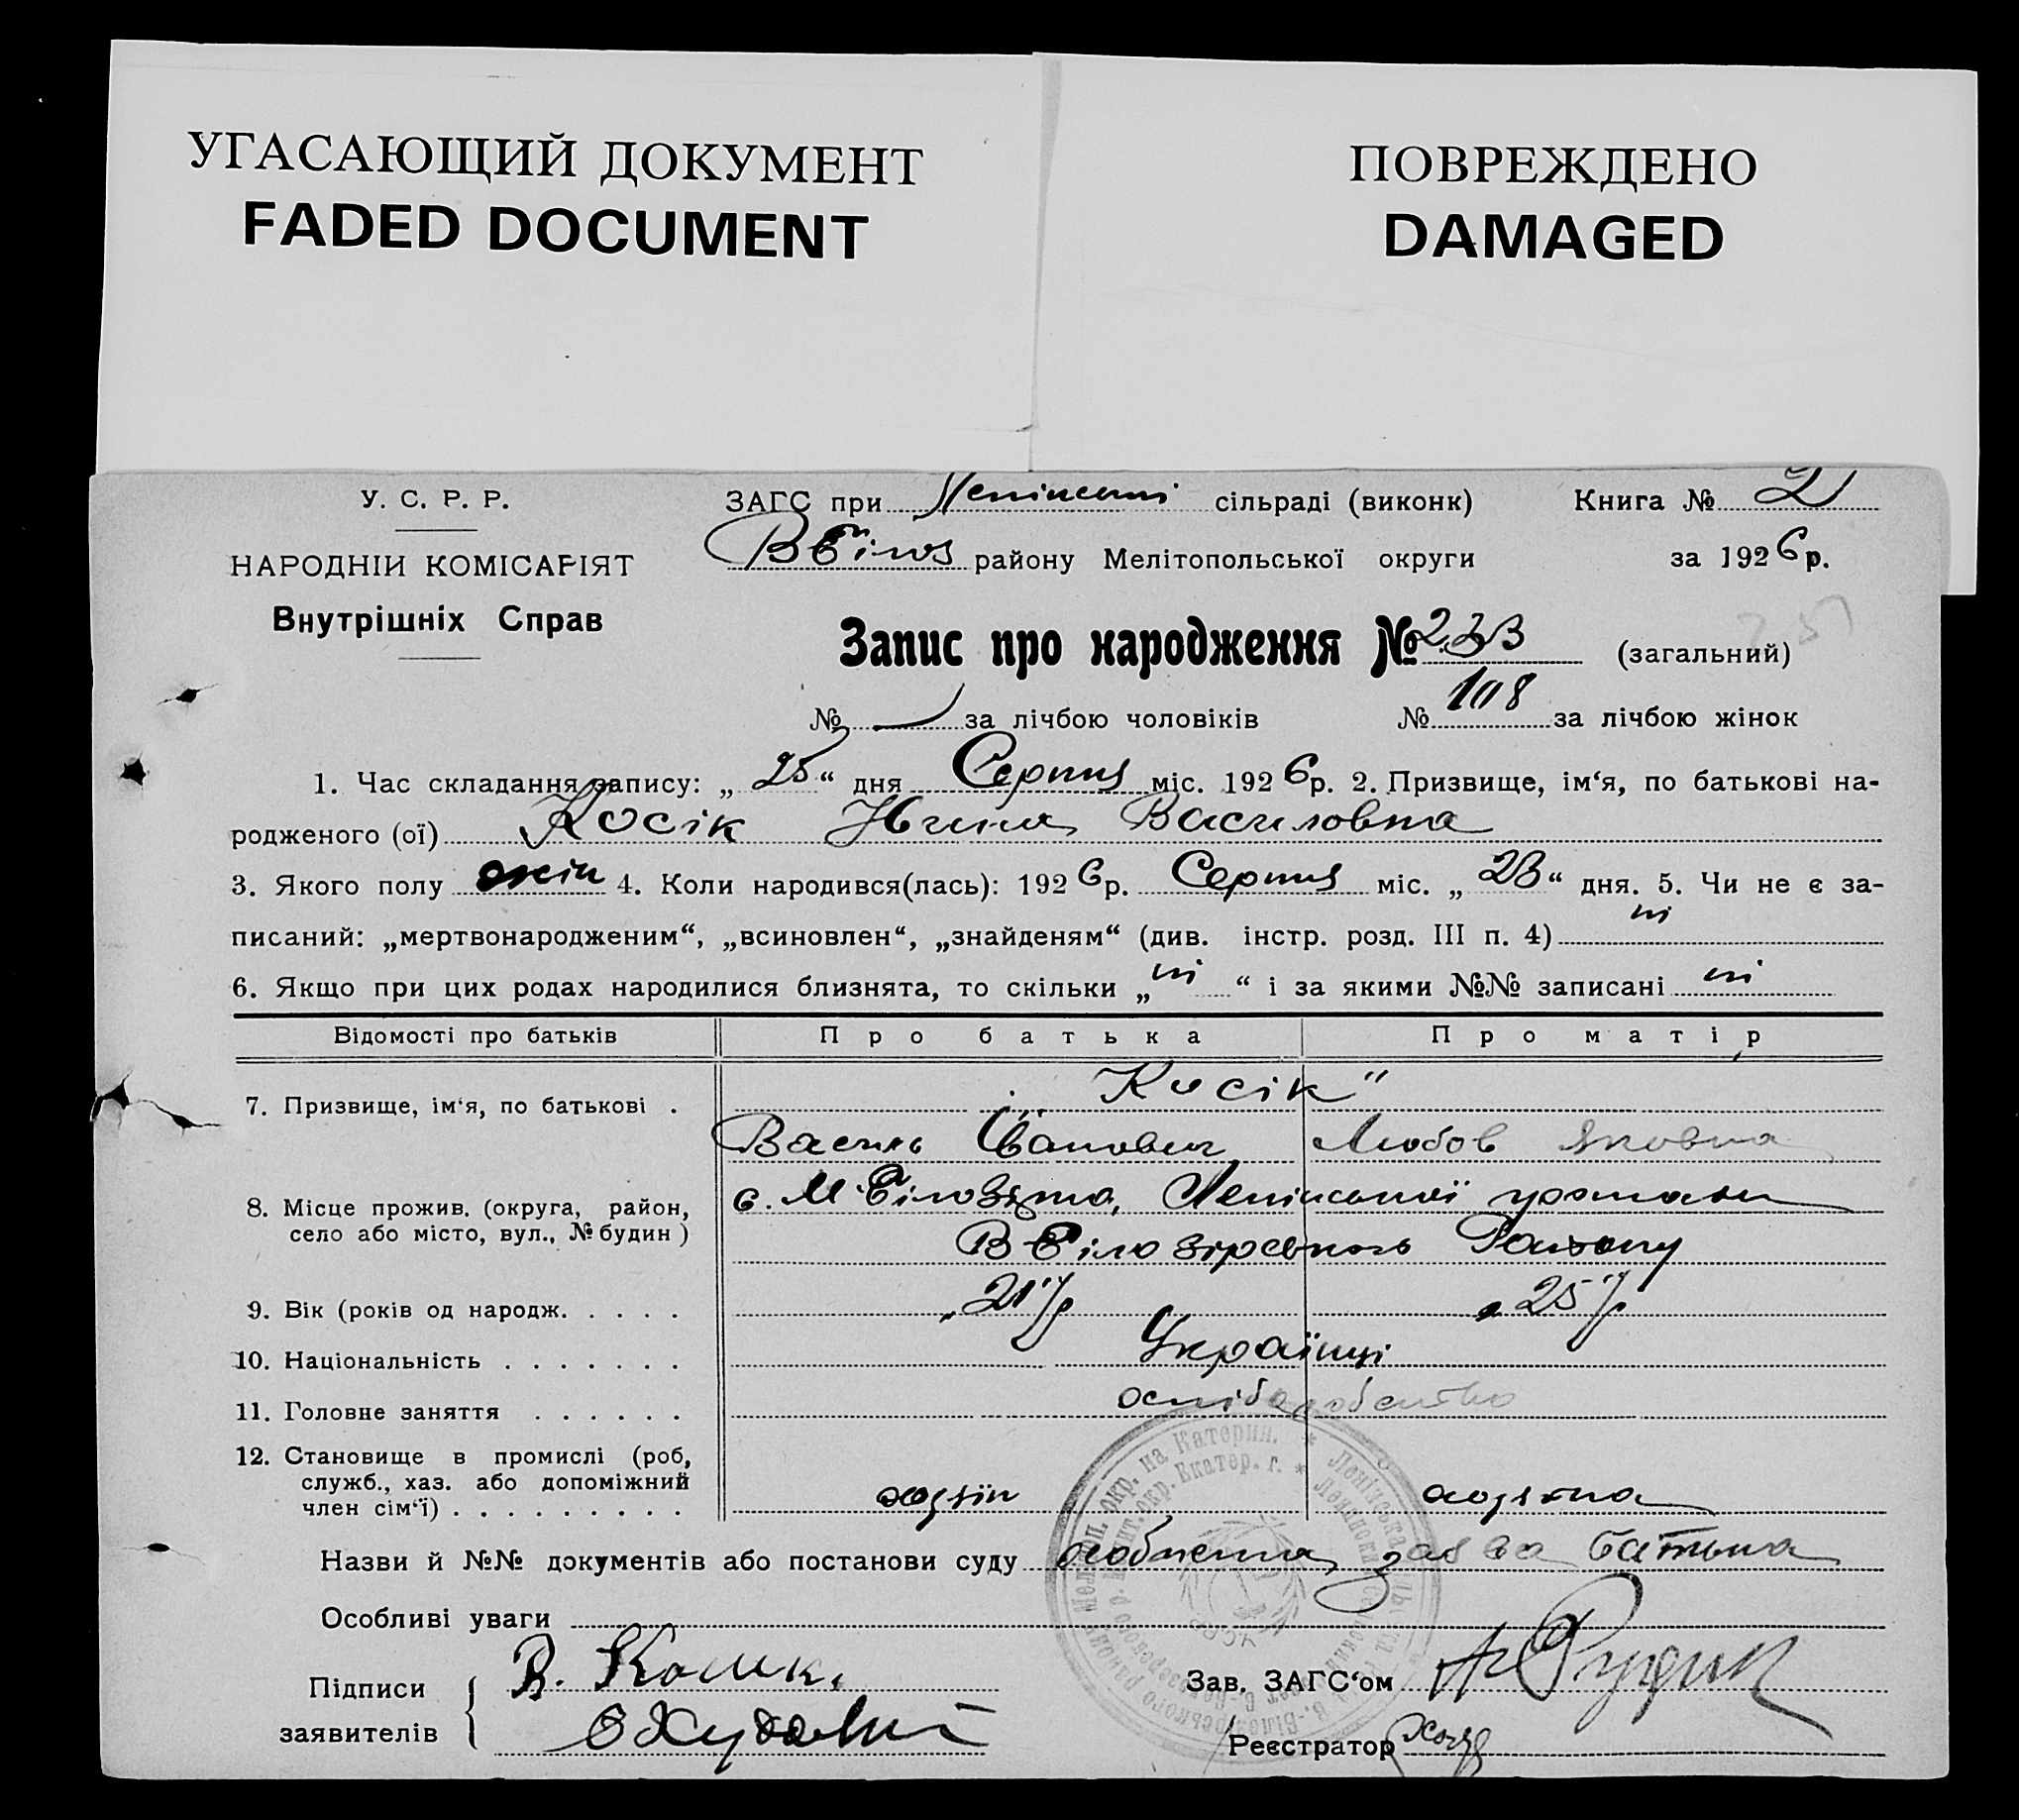 УГАСАЮЩИЙ ДОКУМЕНТ
FADED DOCUMENT
ПОВРЕЖДЕНО
DAMAGED
У. С. Р. Р.
НАРОДНІЙ КОМІСАРІЯТ
Внутрішніх Справ
ЗАГС при Ленінській сільраді (виконк) Книга № 2
району Мелітопольської округи за 1926 р.
Запис про народження № 233 (загальний)
№ за лічбою чоловіків № 108 за лічбою жінок
1. Час складання запису: „25“ дня Серпня міс. 1926 р. 2. Призвище, ім‘я, по батькові на-
родженого (ої) Косік Василовна
3. Якого полу жін 4. Коли народився(лась): 1926 р. Серпня міс. „23“ дня. 5. Чи не є за-
писаний: „мертвонародженим“, „всиновлен“, „знайденям“ (див. інстр. розд. III п. 4) ні
6. Якщо при цих родах народилися близнята, то скільки „ні“ і за якими №№ записані ні
Відомості про батьків Про батька Про матір
7. Призвище, ім‘я, по батькові . Косік
Василь Іванович Любов Яковна
8. Місце прожив. (округа, район,
село або місто, вул., № будин) с. М Білозірка, Ленінської
В Білозірського Району
9. Вік (років од народж. . . . . 21 р 25 р
10. Національність . . . . . . . Українці
11. Головне заняття . . . . . .
12. Становище в промислі (роб,
служб., хаз. або допоміжний
член сім‘ї) . . . . . . . . . хазяїн
Назви й №№ документів або постанови суду особиста заява батька
Особливі уваги
Підписи
заявителів
Зав. ЗАГС‘ом
Реєстратор